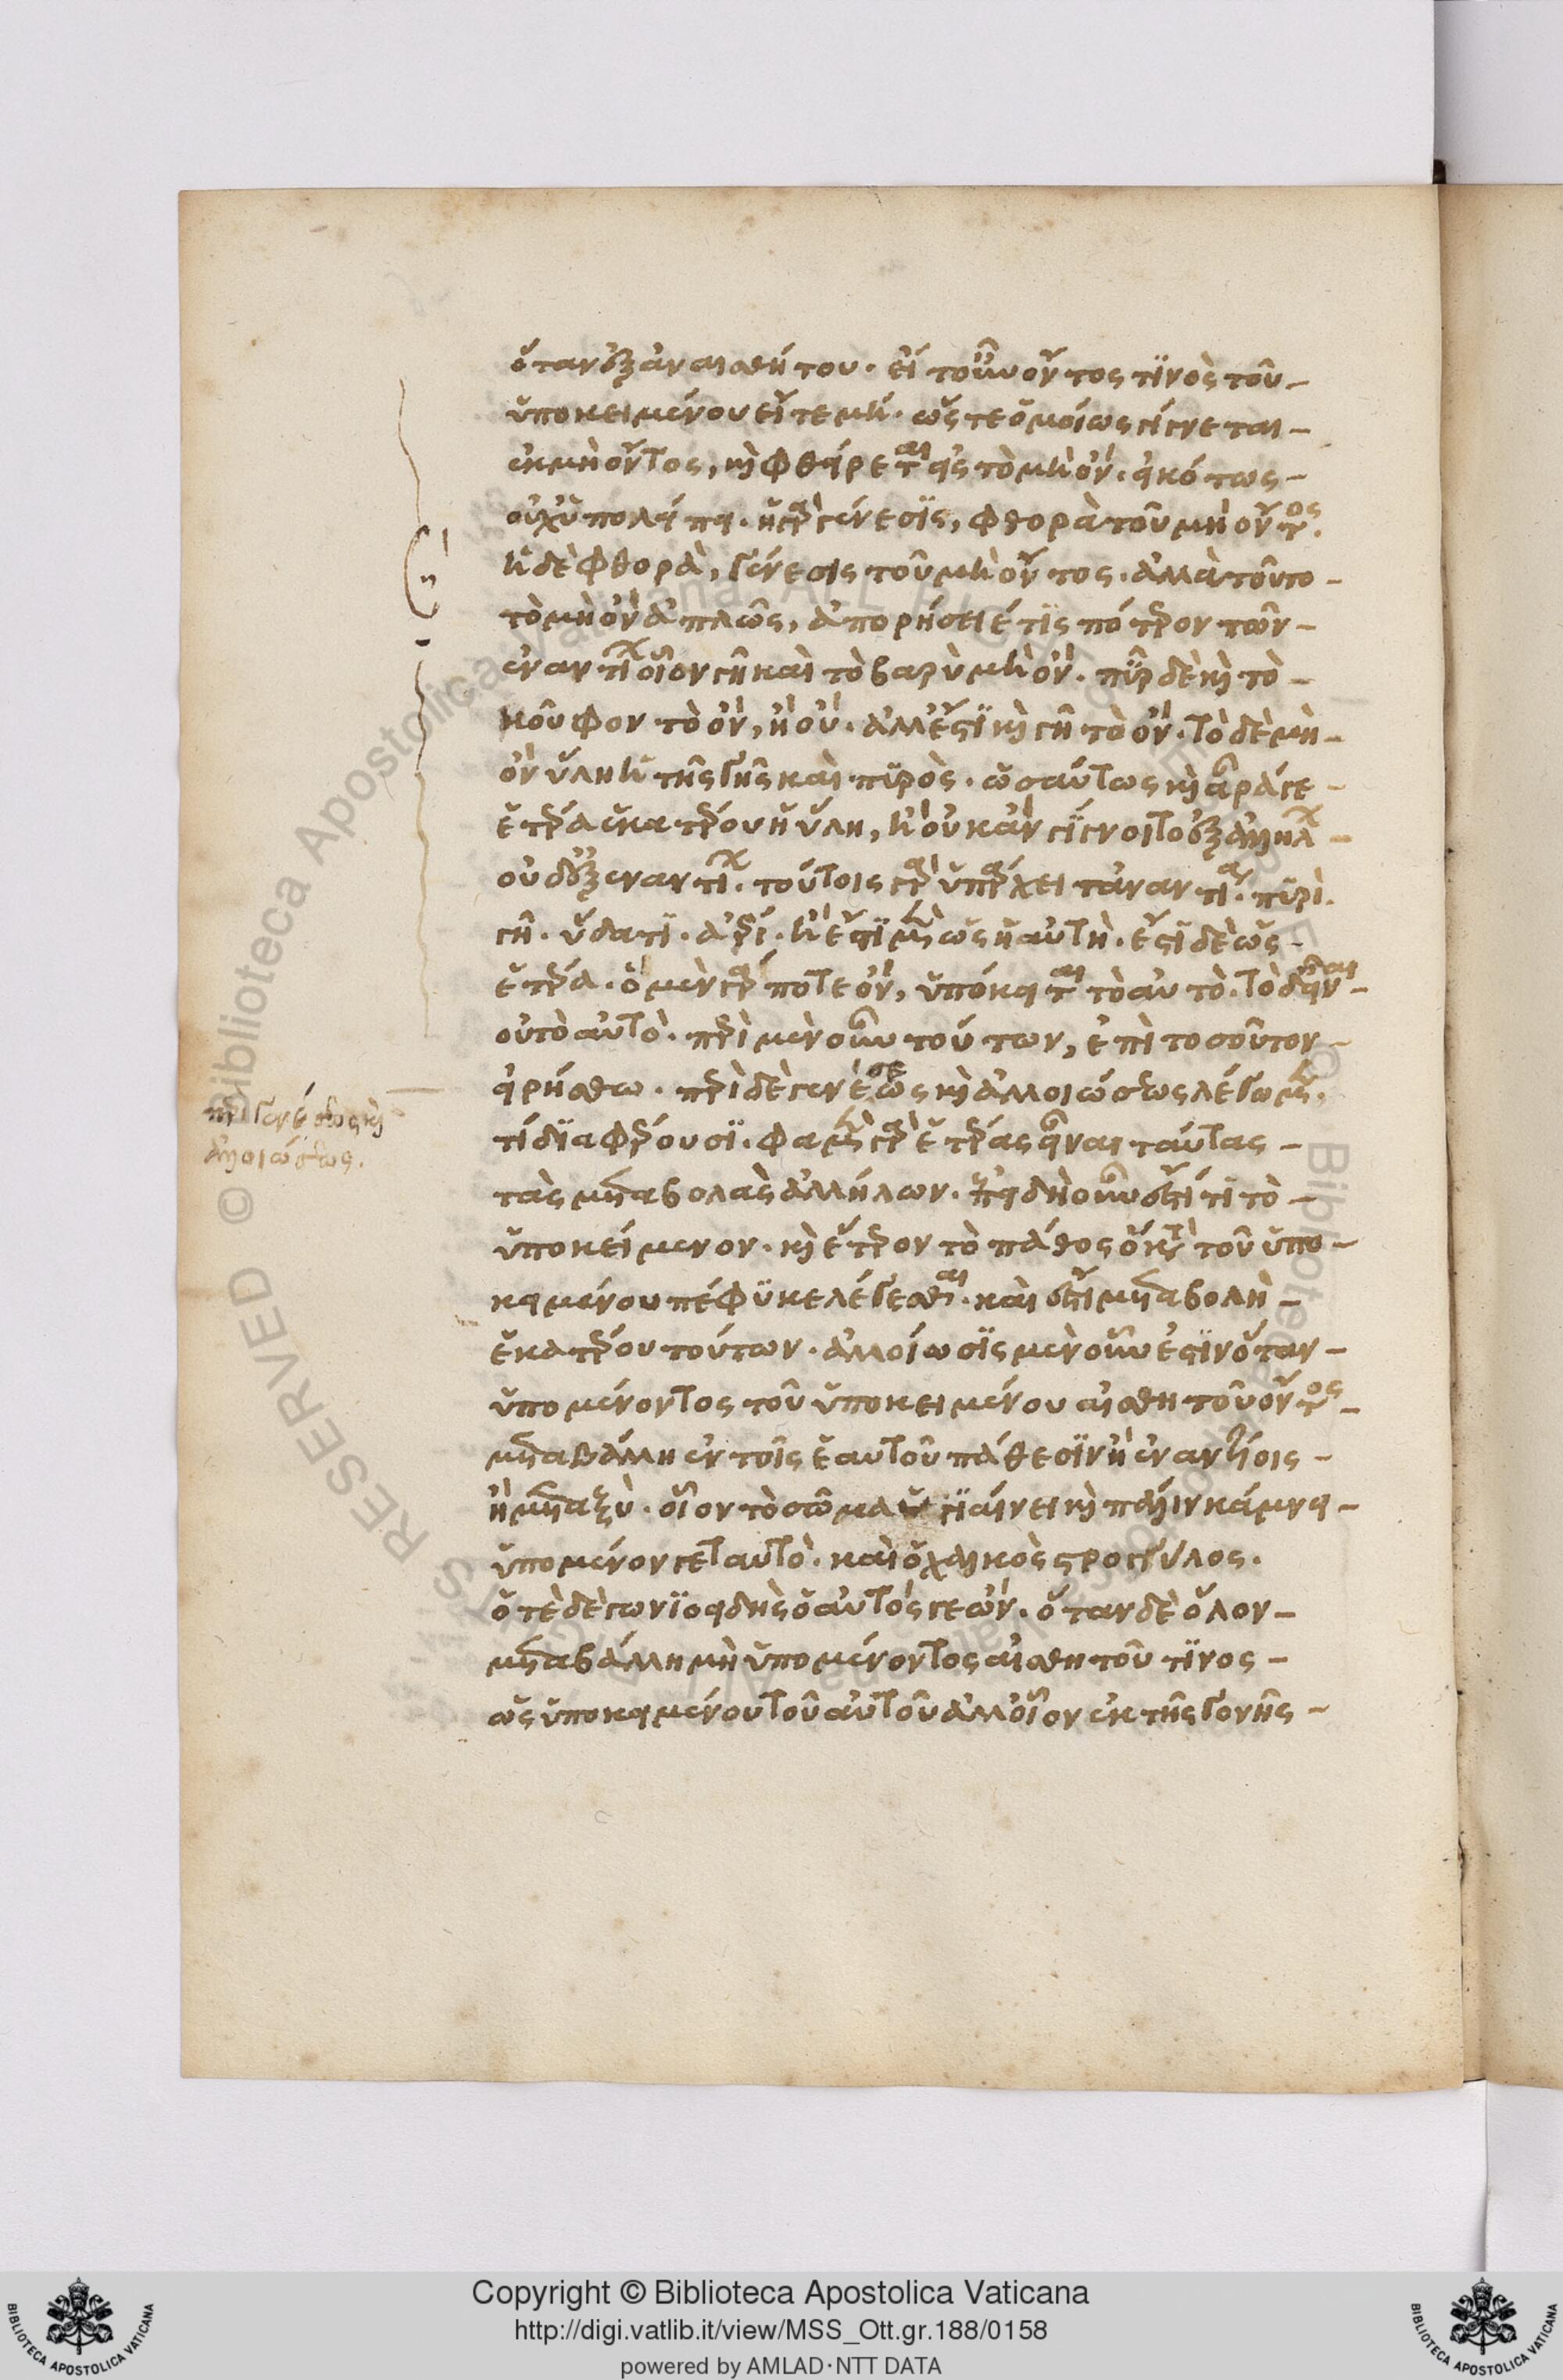 ὅταν ἐξ ἀναισθήτου. εἴ τ' οὖν ὄντος τινὸς τοῦ
ὑποκειμένου εἴτε μή. ὥστε ὁμοίως γίγνεται
ἐκ μὴ ὄντος, καὶ φθείρεται εἰς τὸ μὴ ὄν. εἰκότως
οὐχ ὑπολείπει. ἡ γὰρ γένεσις, φθορὰ τοῦ μὴ ὄντος.
ἡ δὲ φθορὰ, γένεσις τοῦ μὴ ὄντος. ἀλλὰ τοῦτο
τὸ μὴ ὂν ἁπλῶς, ἀπορήσειέ τις πότερον τῶν
ἐναντίων οἷον γῆ καὶ τὸ βαρὺ μὴ ὄν. πῦρ δὲ καὶ τὸ
κοῦφον τὸ ὄν, ἢ οὔ. ἀλλ' ἔστι καὶ γῆ τὸ ὄν. τὸ δὲ μὴ
ὂν ὕλη ἡ τῆς γῆς καὶ πυρός. ὡσαύτως καὶ ἆρά γε
ἑτέρα ἑκατέρου ἡ ὕλη, ἢ οὐκ ἂν γίγνοιτο ἐξ ἀλλήλων
οὐδ' ἐξ ἐναντίων. τούτοις γὰρ ὑπάρχει τἀναντία. πυρὶ.
γῆ. ὕδατι. ἀέρι. ἢ ἔστι μὲν ὡς ἡ αὐτὴ. ἔστι δὲ ὡς
ἑτέρα. ὃ μὲν γάρ ποτε ὄν, ὑπόκειται τὸ αὐτό. τὸ δ' εἶναι
οὐ τὸ αὐτό. περὶ μὲν οὖν τούτων, ἐπὶ τοσοῦτον
εἰρήσθω. περὶ δὲ γενέσεως καὶ ἀλλοιώσεως λέγωμεν.
τί διαφέρουσι. φαμὲν γὰρ ἑτέρας εἶναι ταύτας
τὰς μεταβολὰς ἀλλήλων. ἐπειδὴ οὖν ἐστί τι τὸ
ὑποκείμενον. καὶ ἕτερον τὸ πάθος ὃ κατὰ τοῦ ὑπο
κειμένου πέφυκε λέγεσθαι. καὶ ἔστι μεταβολὴ
ἑκατέρου τούτων. ἀλλοίωσις μὲν οὖν ἐστιν ὅταν
ὑπομένοντος τοῦ ὑποκειμένου αἰσθητοῦ ὄντος
μεταβάλλη ἐν τοῖς ἑαυτοῦ πάθεσιν ἢ ἐναντίοις
ἢ μεταξύ. οἷον τὸ σῶμα ὑγιαίνει καὶ πάλιν κάμνει
ὑπομένον γε ταὐτό. καὶ ὁ χαλκὸς στρογγύλος.
ὁτὲ δὲ γωνιοειδὴς ὁ αὐτός γε ὤν. ὅταν δὲ ὅλον
μεταβάλλη μὴ ὑπομένοντος αἰσθητοῦ τινος
ὡς ὑποκειμένου τοῦ αὐτοῦ ἀλλ' οἷον ἐκ τῆς γονῆς
περὶ γενέσεως καὶ
ἀλλοιώσεως.
Copyright © Biblioteca Apostolica Vaticana
http://digi.vatlib.it/view/MSS_Ott.gr.188/0158
powered by AMLAD·NTT DATA